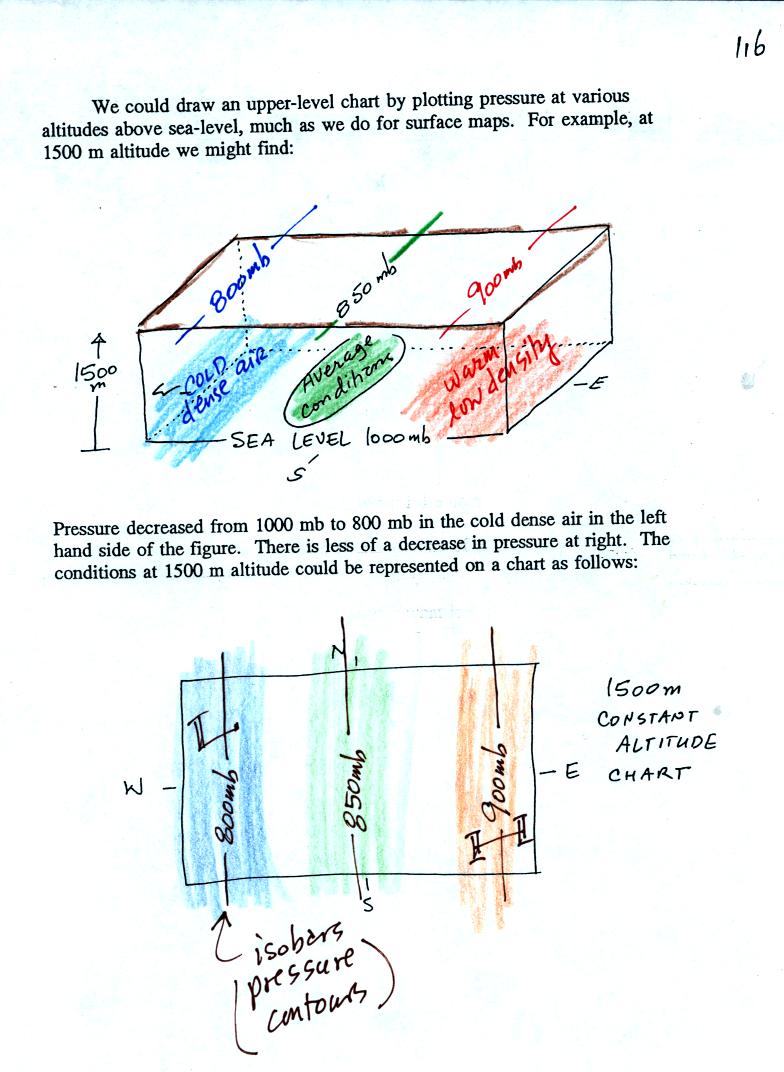 116
We could draw an upper-level chart by plotting pressure at various
altitudes above sea-level, much as we do for surface maps. For example, at
1500 m altitude we might find:
800mb
850 mb
900mb
1500
m
COLD
dense air
Average
conditions
warm
low density
E
SEA LEVEL 1000mb
S
Pressure decreased from 1000 mb to 800 mb in the cold dense air in the left
hand side of the figure. There is less of a decrease in pressure at right. The
conditions at 1500 m altitude could be represented on a chart as follows:
N
L
W
800mb
850mb
900mb
H
E
S
1500m
CONSTANT
ALTITUDE
CHART
isobars
(pressure
contours)